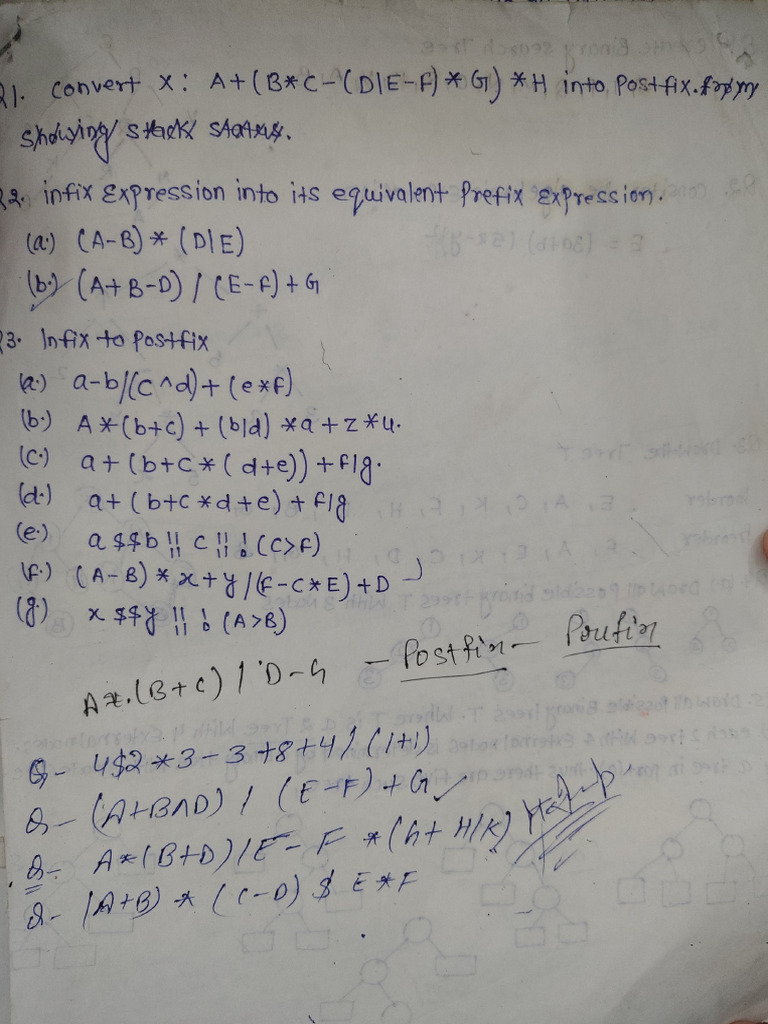 Q1. Convert X: A+(B*C-(D/E-F)*G)*H into Postfix. form
showing stack status.
Q2. infix Expression into its equivalent Prefix Expression.
(a.) (A-B)*(D/E)
(b.) (A+B-D)/(E-F)+G
Q3. Infix to Postfix
(a.) a-b/(c^d)+(e*f)
(b.) A*(b+c)+(b/d)*a+z*u.
(c.) a+(b+c*(d+e))+f/g.
(d.) a+(b+c*d+e)+f/g
(e.) a$$b !! c !! !(c>f)
(f.) (A-B)*x+y/(F-C*E)+D
(g.) x$$y !! !(A>B)
A*.(B+C)/D-G - Postfix - Prefix
Q- 4$2*3-3+8+4/(1+1)
Q- (A+B^D)/(E-F)+G
Q- A*(B+D)/E-F*(G+H/K)
Q- (A+B)*(C-D)$E*F